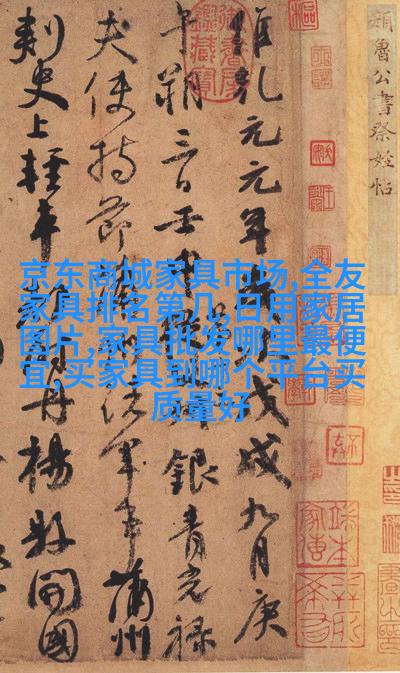 顏魯公書祭姪帖
維乾元元年戊戌九月庚
午朔三日壬申銀青光祿
夫使持節軍事蒲州
刺史上輕車丹楊縣開國
京东商城家具市场,全友
家具排名第几,日用家居
图片,家具批发哪里最便
宜,买家具到哪个平台买
质量好